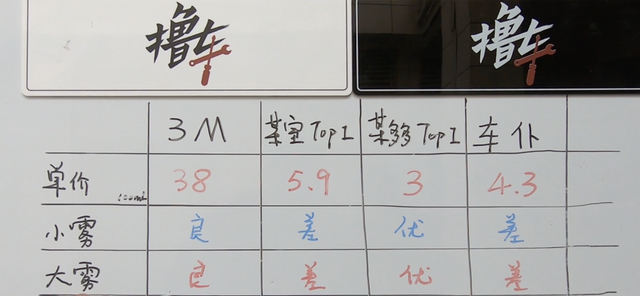 撸车
撸车
3M 某宝Top1 某多Top1 车仆
单价 100ml 38 5.9 3 4.3
小雾 良 差 优 差
大雾 良 差 优 差